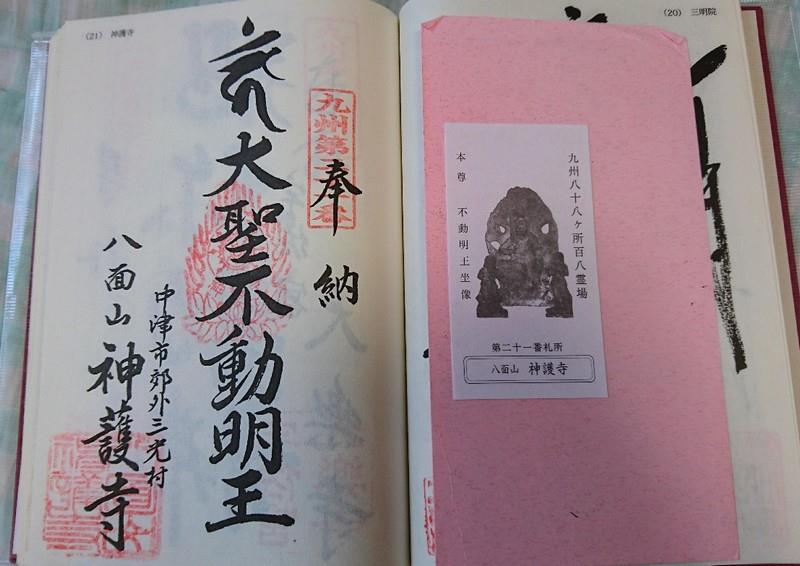 (20) 三明院
九州八十八ヶ所百八霊場
本尊 不動明王坐像
第二十一番札所
八面山 神護寺
(21) 神護寺
奉納
大聖不動明王
中津市郊外三光村
八面山 神護寺
九州第
番